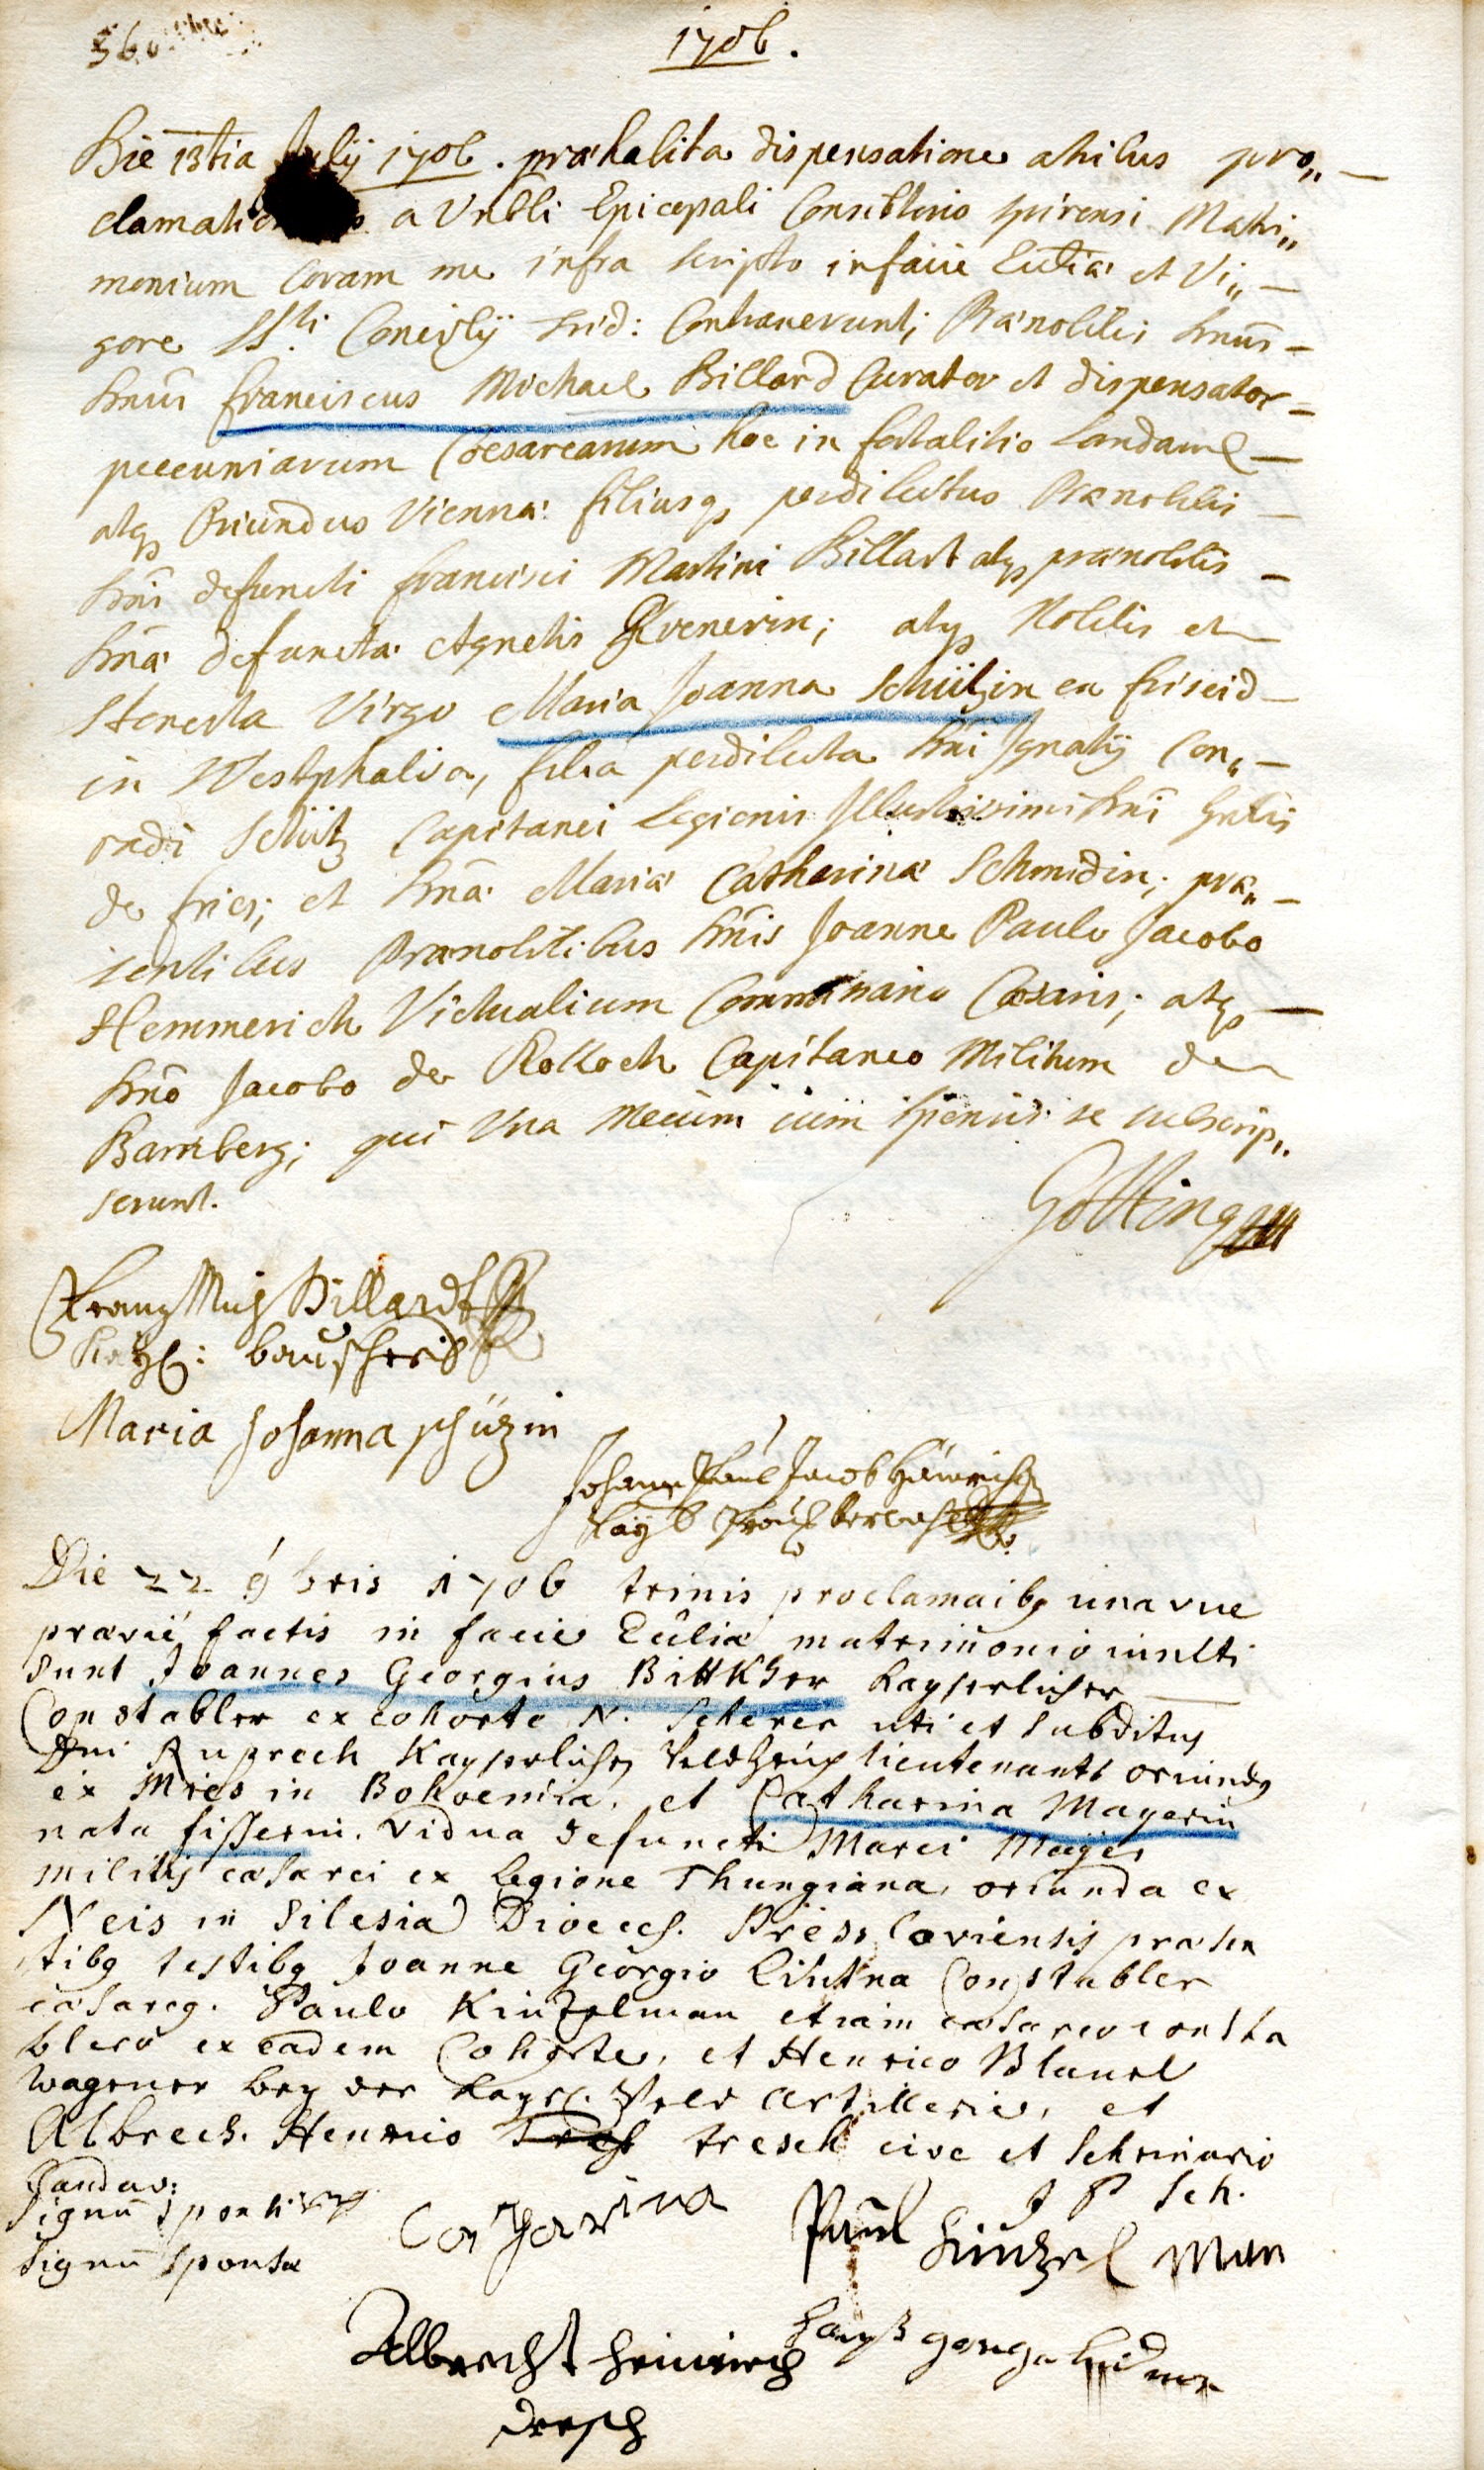 560
1706.
Die 13tia July 1706. præhabita dispensatione a tribus pro„
clamatio a Vnbli Episcopali Consistorio Spirensi Matri„
monium Coram me infra scripto in facie Ecctiæ et Vi„
gore SSti Concilÿ Trid: Contraxerunt; Prænobilis Dnus
Dnus Franciscus Michael Billard Curator et dispensator
pecuniarum Cæsarearum hoc in fortalitio Landau
atq Oriundus Vienna filiusq perdilectus Prænobilis
Dni defuncti Francisci Martini Billart atq prænobilis
Dnæ defunctæ Agnetis ; atq Nobilis et
Honesta Virgo Maria Joanna Schützin ex
in Westphalia, filia perdilecta Dni Ignatÿ Con„
radi Schütz Capitanei Legionis Illustrissimi Dni
de Fries; et Dnæ Mariæ Catharinæ Schmidin; præ„
sentibus Prænobilibus Dnis Joanne Paulo Jacobo
Hemmerich Victualium Commissario Cæsaris; atq
Dno Jacobo de Rolloch Capitaneo Militum de
Bamberg; qui Una Mecum cum sponsis se subscrip„
serunt.
Gotting
Frantz Mich Billardt
Kayl: bauschreib
Maria Johanna schüzin
Johann Paul Jacob Hämerich
Kayl
Die 22 9bris 1706 trinis proclamaibq una vice
prævie factis in facie Ecclîæ matrimonio iuncti
sunt Joannes Georgius Bittkher Kayserlicher
Constabler ex cohorte N. Scherer uti et subditus
Dni Ruprech Kayserlichen Veldzeug lieutenants oriundq
ex Mies in Bohoemia, et Catharina Mayerin
nata fisserin. vidua defuncti Marci Mayer
militis cæsarei ex legione Thungiana, oriunda ex
Neis in Silesia Dioeces. Presslaviensis præsen
tibq testibq Joanne Georgio Constabler
cæsareq. Paulo Kintzelman etiam cæsareo consta
blero ex eadem Cohorte, et Henrico Blanel
wagener bey der Kaysl. Veld Artillerie, et
Albrech. Henrico tresch cive et Schrinario
Landav:
Signū sponsi
Catharina
J P Sch.
Signū sponsæ
Paul Kintzel Man
Albrecht Heinrich
dresch
Hanß georg